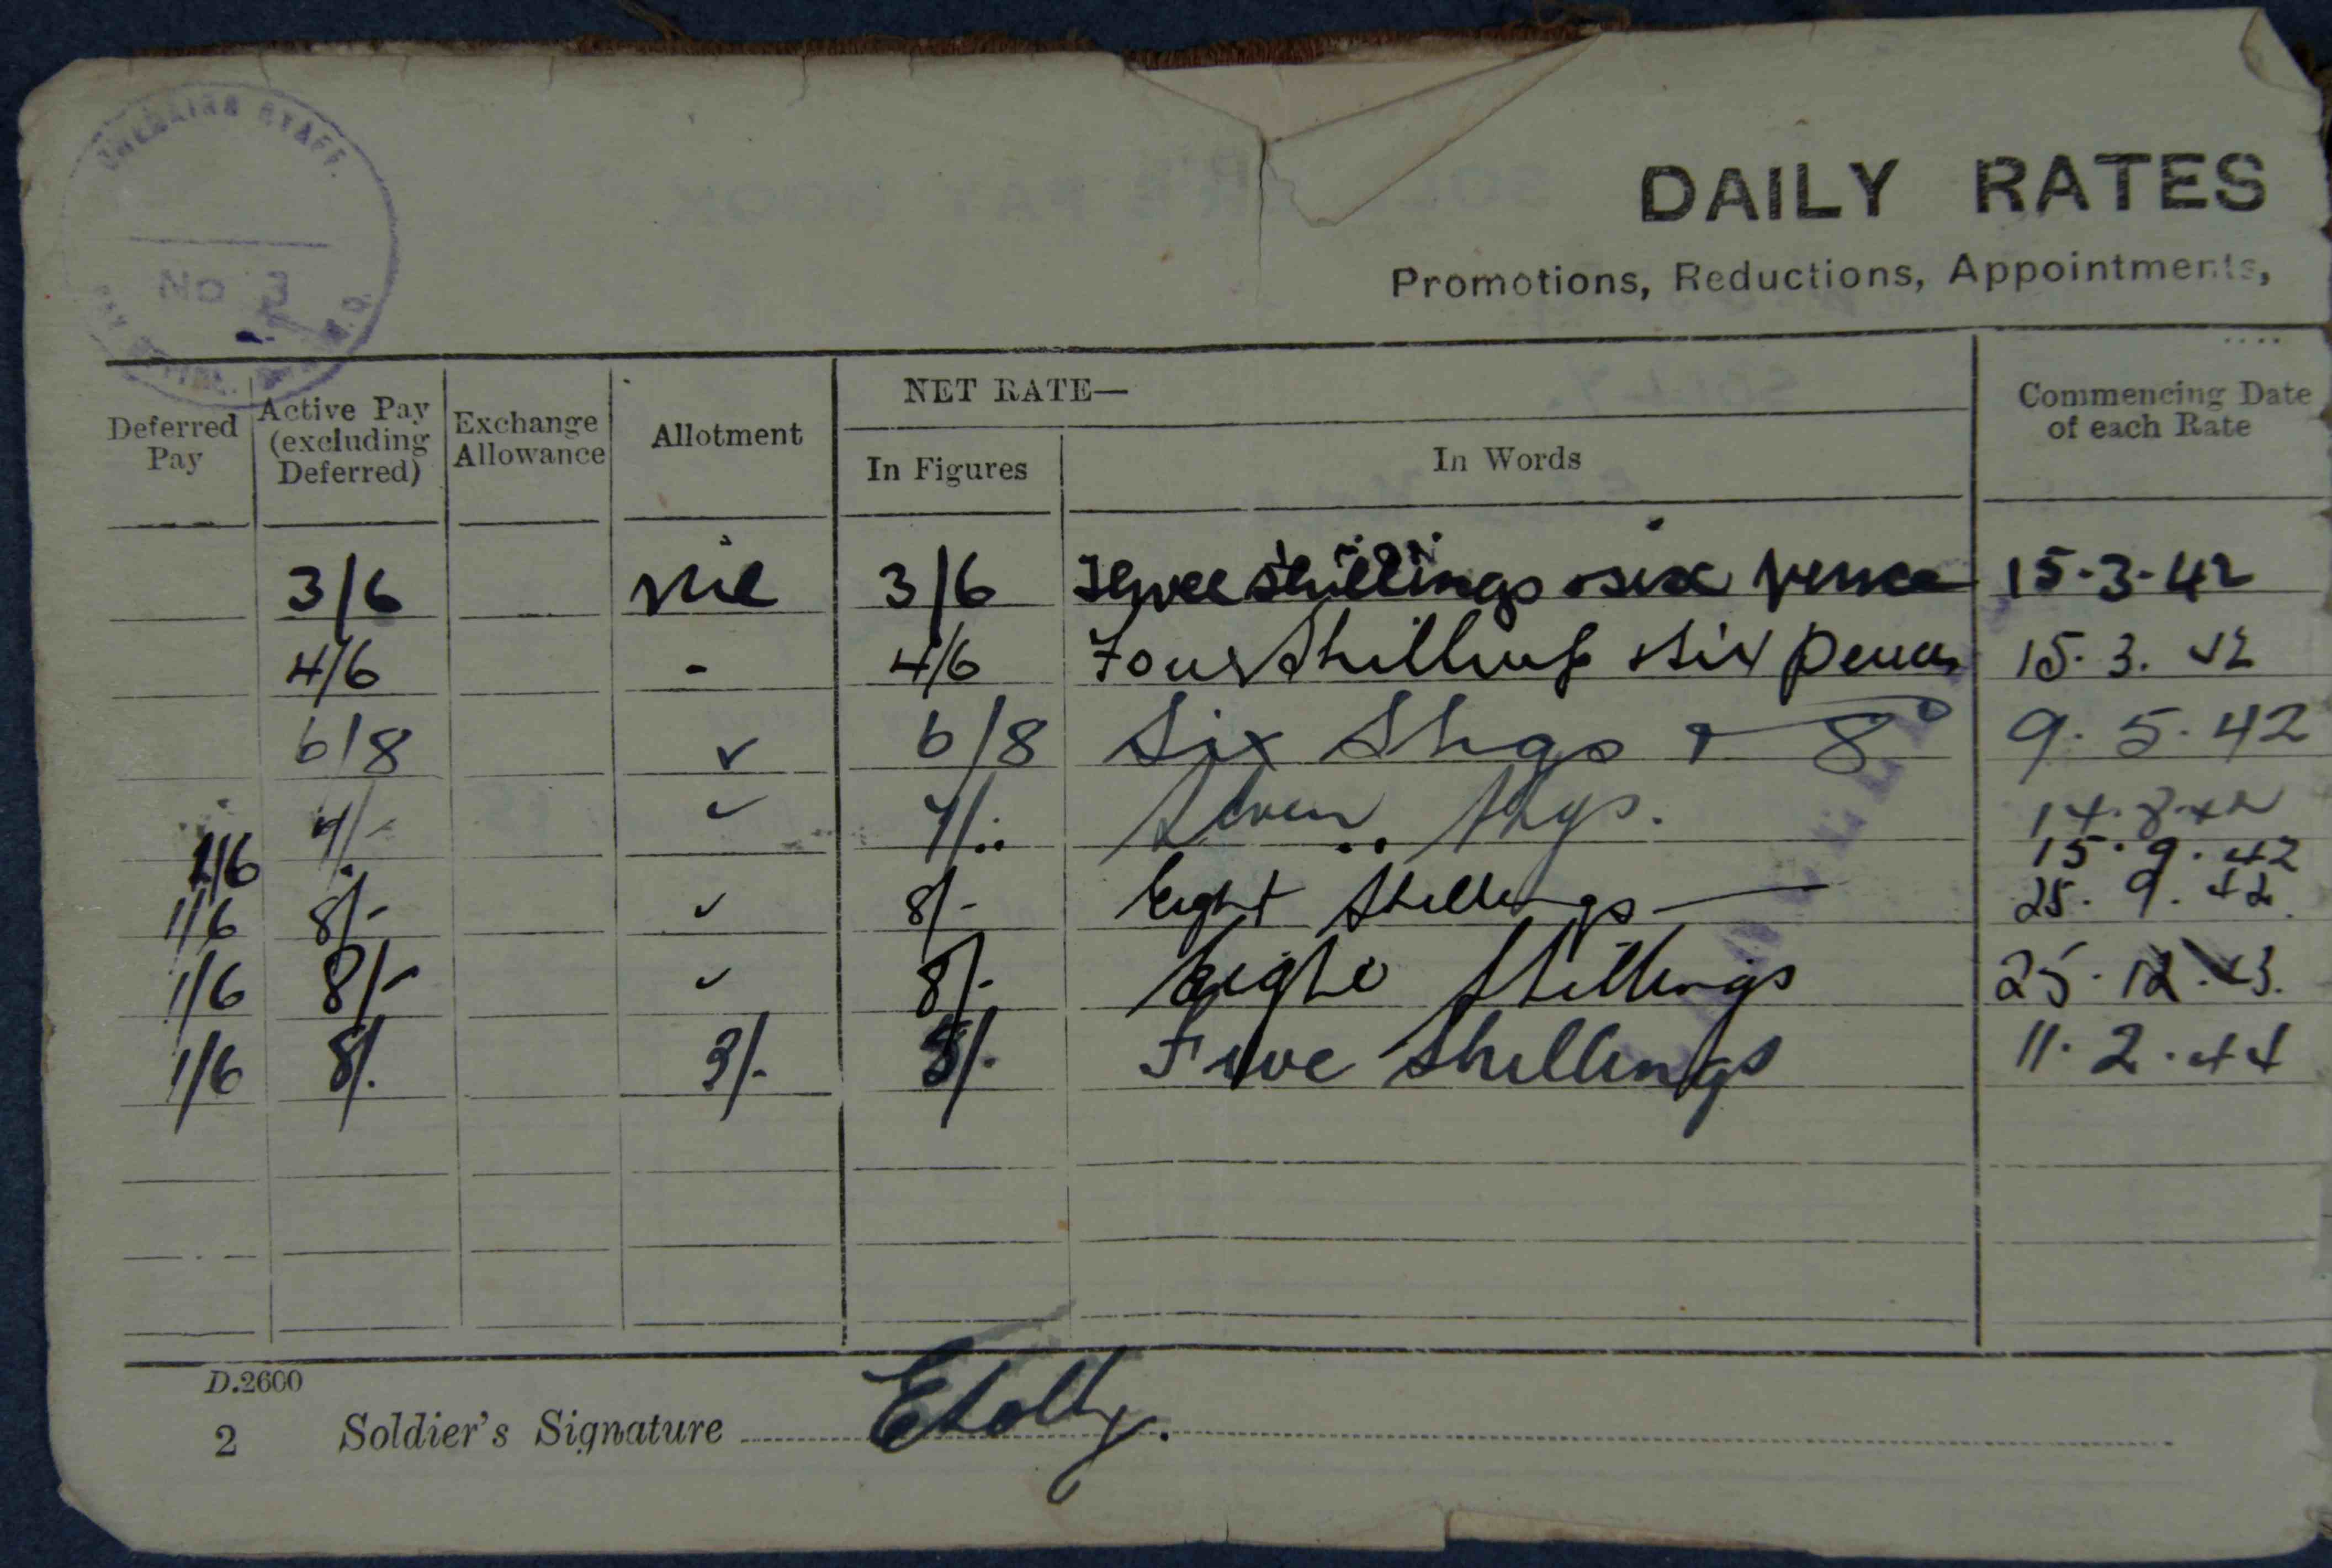 CHECKING STAFF.
No 3
DAILY RATES
Promotions, Reductions, Appointments,
Deferred Pay
Active Pay (excluding Deferred)
Exchange Allowance
Allotment
NET RATE—
In Figures
In Words
Commencing Date of each Rate
3/6 nil 3/6 Three shillings six pence 15.3.42
4/6 - 4/6 Four Shillings six pence 15.3.42
6/8 ✓ 6/8 Six Shgs & 8ᴰ 9.5.42
7/- ✓ 7/- Seven Shgs. 14.8.42
1/6 15.9.42
1/6 8/- ✓ 8/- Eight Shillings — 25.9.42
1/6 8/- ✓ 8/- Eight Shillings 25.12.43
1/6 8/- 3/- 5/- Five Shillings 11.2.44
CANCELLED
D.2600
2 Soldier's Signature